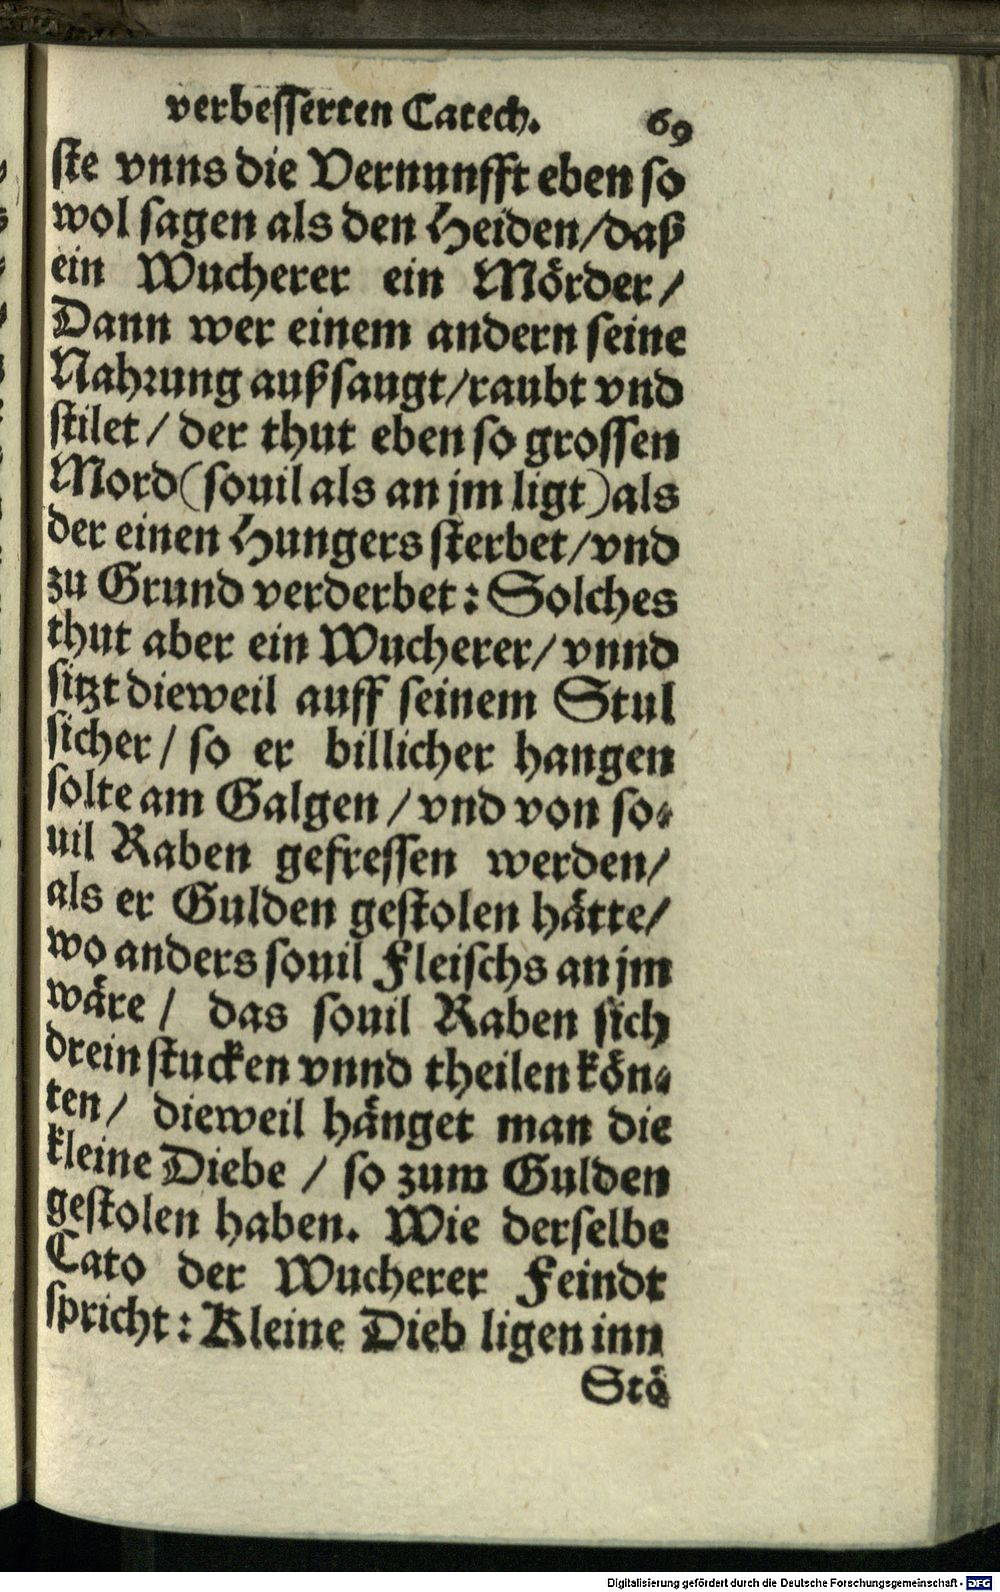 verbesserten Catech. 69
ste vnns die Vernunfft eben so
wol sagen als den Heiden/daß
ein Wucherer ein Mörder/
Dann wer einem andern seine
Nahrung außsaugt/raubt vnd
stilet/ der thut eben so grossen
Mord(souil als an jm ligt)als
der einen Hungers sterbet/vnd
zu Grund verderbet: Solches
thut aber ein Wucherer/ vnnd
sitzt dieweil auff seinem Stul
sicher/ so er billicher hangen
solte am Galgen/vnd von so-
uil Raben gefressen werden/
als er Gulden gestolen hätte/
wo anders souil Fleischs an jm
wäre/ das souil Raben sich
drein stucken vnnd theilen kön-
ten/ dieweil hänget man die
kleine Diebe/ so zum Gulden
gestolen haben. Wie derselbe
Cato der Wucherer Feindt
spricht: Kleine Dieb ligen inn
Stö
Digitalisierung gefördert durch die Deutsche Forschungsgemeinschaft - DFG